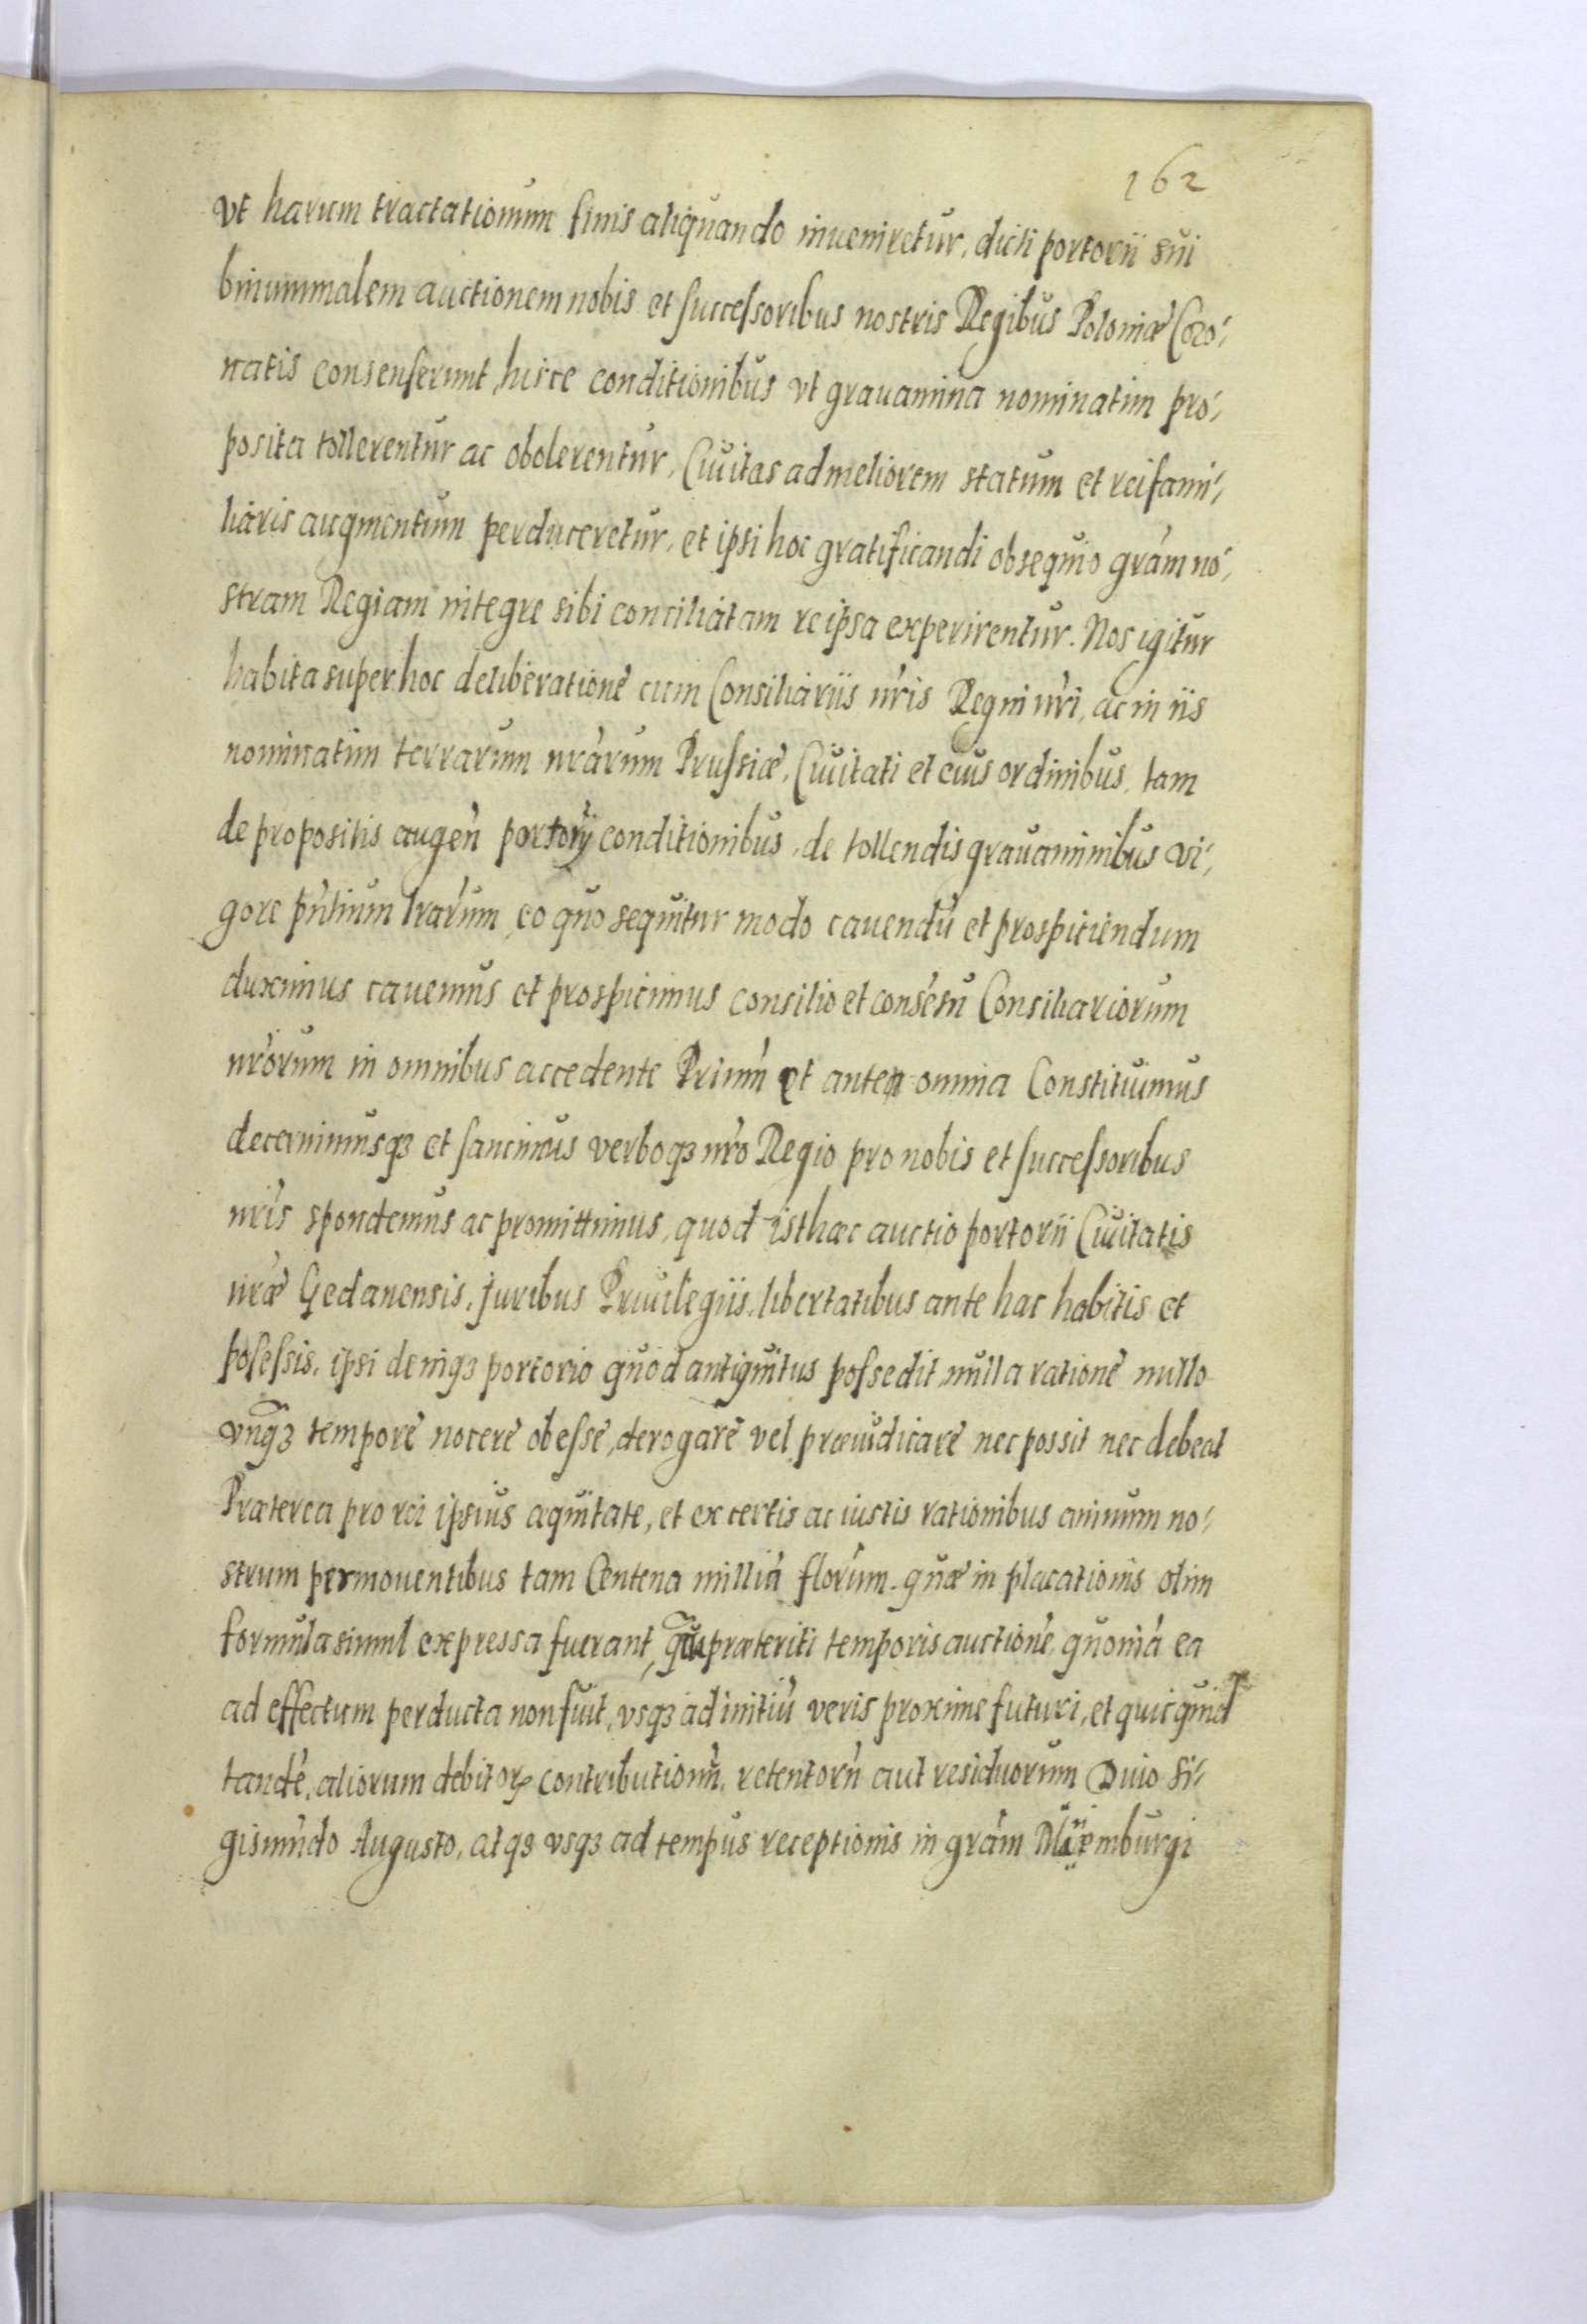 162
vt harum tractationum finis aliquando inueniretur, dicti portorii sui
binummalem auctionem nobis et successoribus nostris Regibus Poloniæ Coro-
natis consenserunt, hisce conditionibus vt grauamina nominatim pro-
posita tollerentur ac obolerentur, Ciuitas ad meliorem statum et rei fami-
liaris augmentum perduceretur, et ipsi hoc gratificandi obsequio grãm no-
stram Regiam integre sibi conciliatam re ipsa experirentur. Nos igitur
habita super hoc deliberatione cum Consiliariis nr̃is Regni nr̃i, ac in iis
nominatim terrarum nr̃arum Prussiæ, Ciuitati et eius ordinibus, tam
de propositis augeñ portorij conditionibus, de tollendis grauaminibus vi-
gore pñtium lr̃arum eo quo sequitur modo cauendũ et prospiciendum
duximus cauemus et prospicimus consilio et consẽsu Consiliariorum
nr̃orum in omnibus accedente Primũ et ante omnia Constituimus
decernimusqꝫ et sancimus verboqꝫ nr̃o Regio pro nobis et successoribus
nr̃is spondemus ac promittimus, quod isthæc auctio portorii Ciuitatis
nr̃æ Gedanensis, juribus Priuilegiis, libertatibus ante hac habitis et
posessis, ipsi deniqꝫ portorio quod antiquitus possedit, nulla ratione nullo
vnq̃ꝫ tempore nocere obesse, derogare vel præiudicare nec possit nec debeat
Præterea pro rei ipsius æquitate, et ex certis ac iustis rationibus animum no-
strum permouentibus tam Centena millia florũm. quæ in placationis olim
formula simul expressa fuerant, q̃ præteriti temporis auctione, quoniã ea
ad effectum perducta non fuit, vsqꝫ ad initiũ veris proxime futuri, et quicquid
tandẽ, aliorum debitoꝝ contributionũ, retentorũ aut residuorum Diuo Si-
gismũndo Augusto, atqꝫ vsqꝫ ad tempus receptionis in grãm